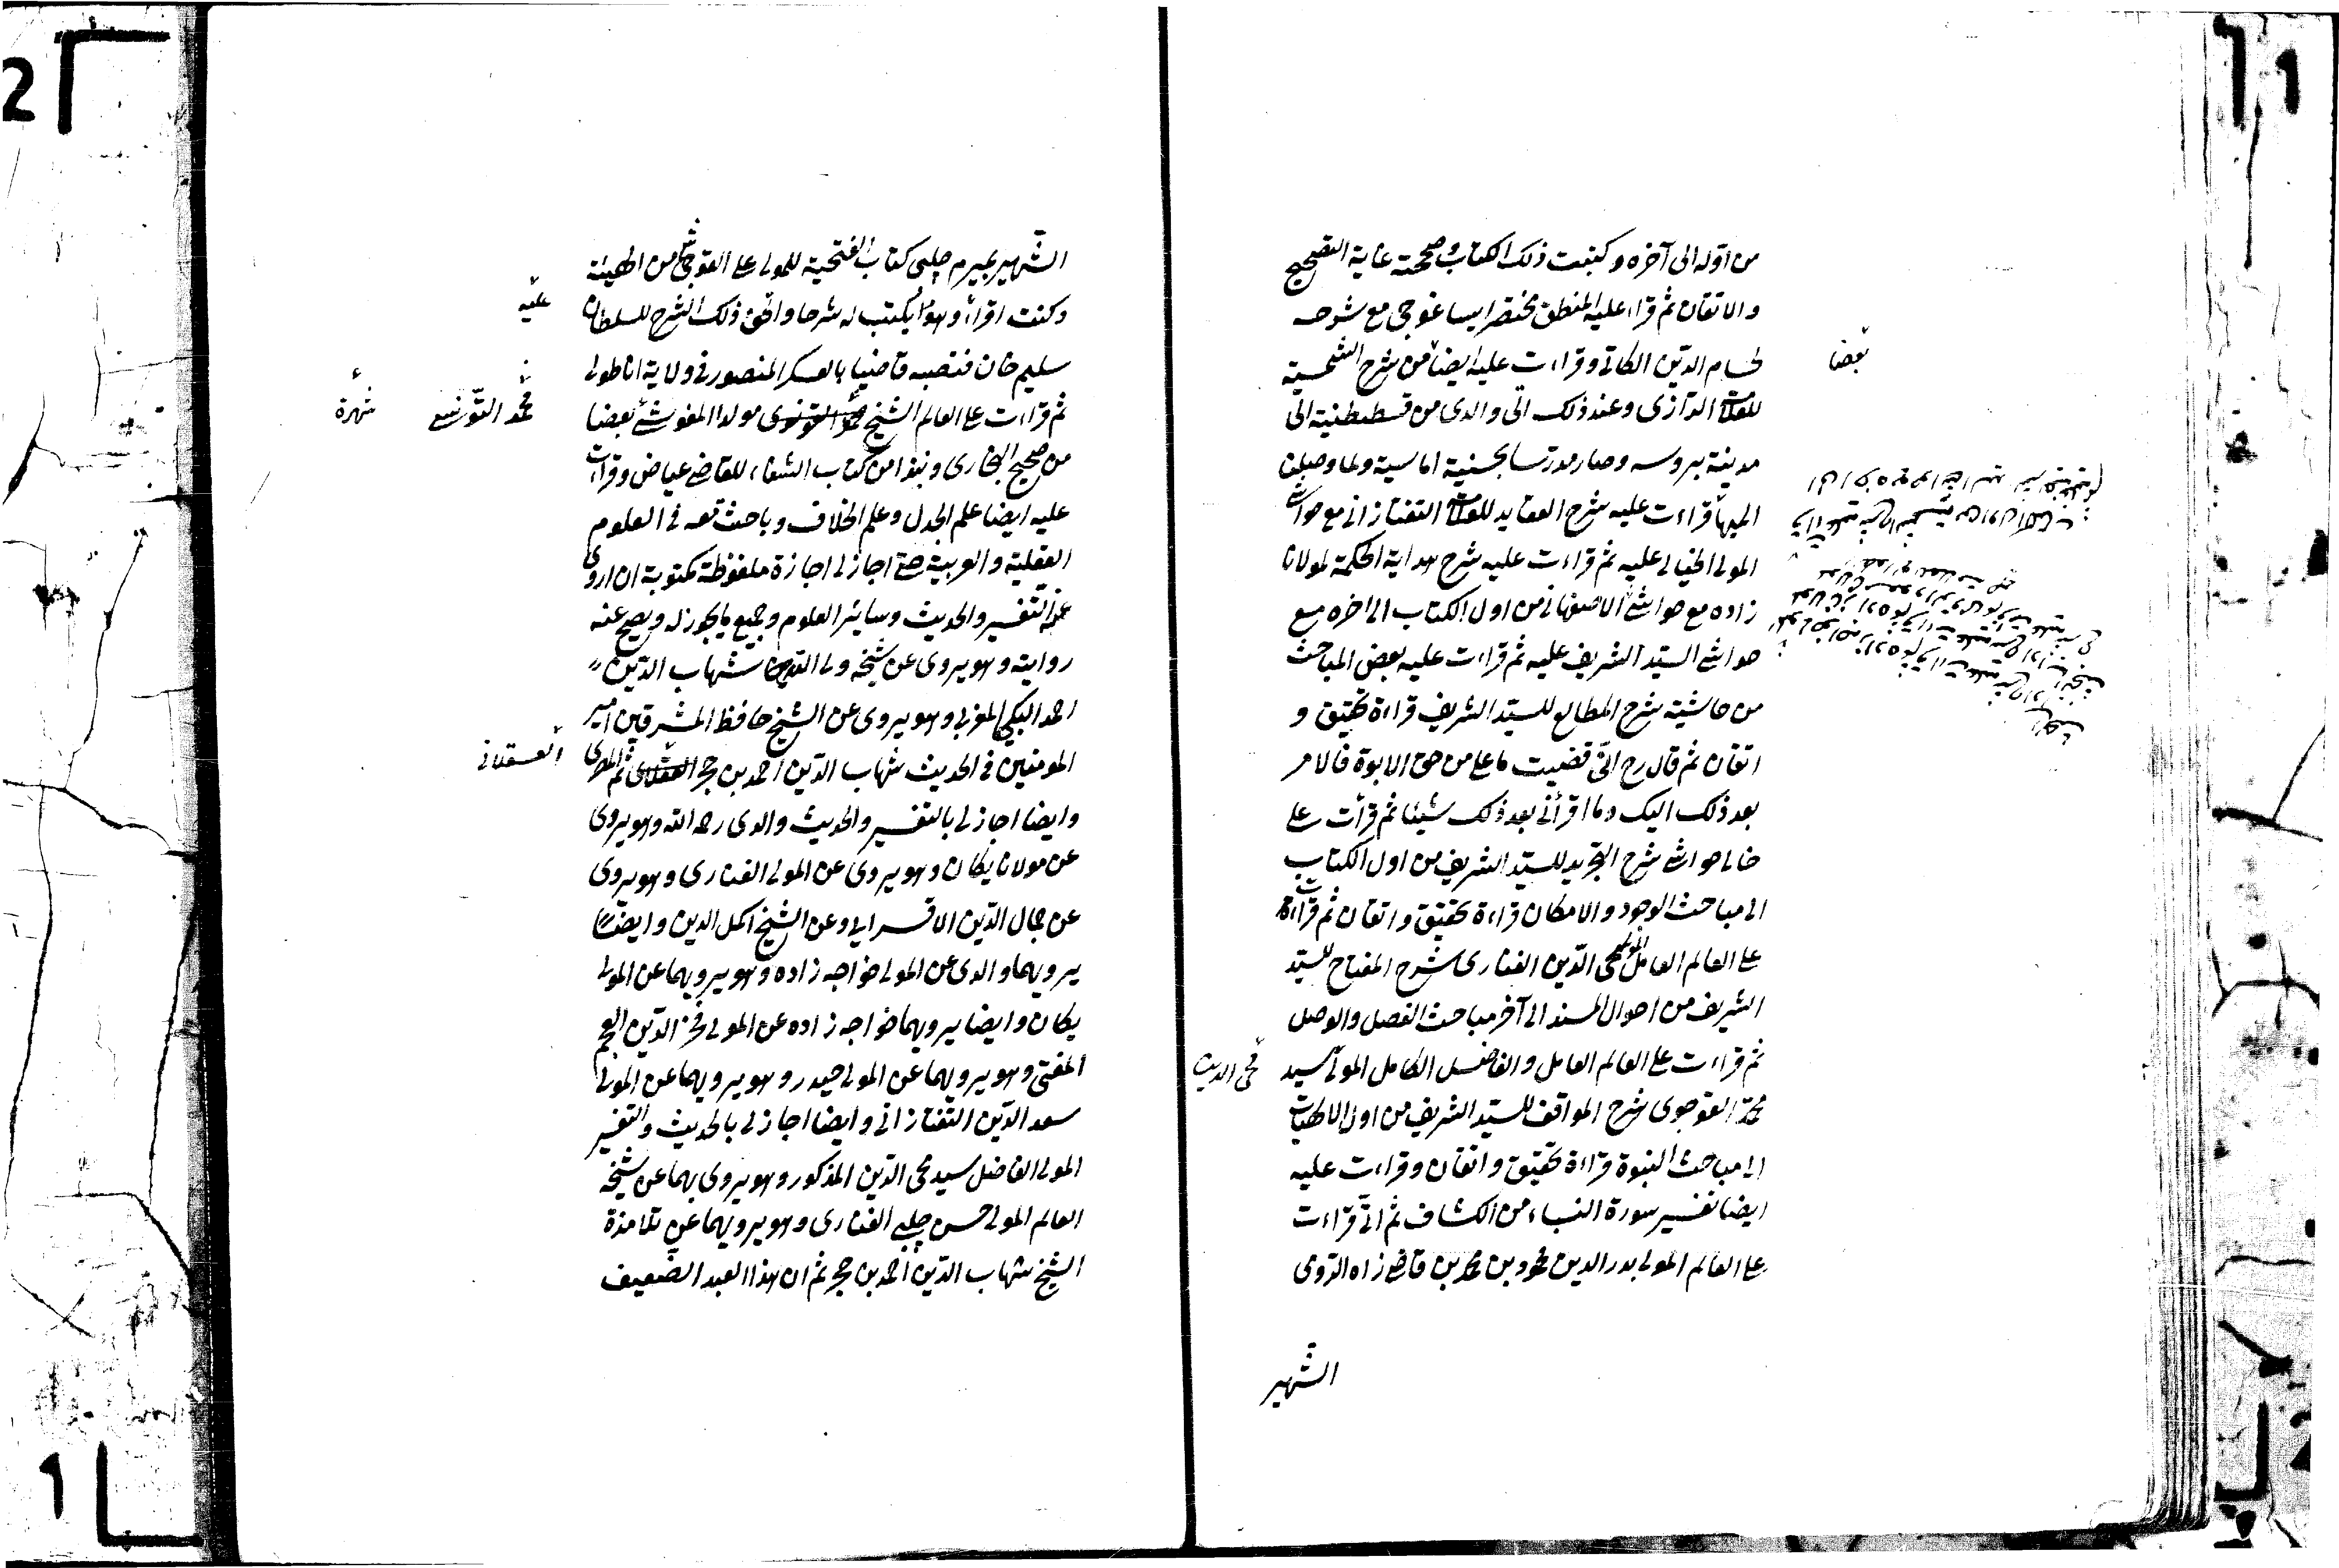 من اوله الى آخره وكتبت ذلك الكتاب وصححته غاية التصحيح
والاتقان ثم قراءت عليه المنطق مختصر ايساغوجى مع شرحه
لحسام الدين الكاتى وقراءت عليه ايضا من شرح الشمسية
بعضا
للعلامة الرازى وعند ذلك اتى والدى من قسطنطنية الى
مدينة بروسه وصار مدرسا بحسينية اماسية ولما وصلنا
اليها قراءت عليه شرح العقايد للعلامة التفتازانى مع حواشى
المولى الخيالى عليه ثم قراءت عليه شرح هداية الحكمة لمولانا
زاده مع حواشى الاصفهانى من اول الكتاب الى اخره مع
حواشى السيد الشريف عليه ثم قراءت عليه بعض المباحث
من حاشية شرح المطالع للسيد الشريف قراءة تحقيق و
اتقان ثم قال رح انى قضيت ما على من حق الابوة فالامر
بعد ذلك اليك وما اقرأنى بعد ذلك شيئا ثم قرأت على
خالى حواشى شرح التجريد للسيد الشريف من اول الكتاب
الى مباحث الوجود والامكان قراءة تحقيق واتقان ثم قراءت
على العالم العامل المولى محى الدين الفنارى شرح المفتاح للسيد
الشريف من احوال المسند الى آخر مباحث الفصل والوصل
ثم قراءت على العالم العامل والفاضل الكامل المولى سيد
محى الدين
محمد القوجوى شرح المواقف للسيد الشريف من اول الالهيات
الى مباحث النبوة قراءة تحقيق واتقان وقراءت عليه
ايضا تفسير سورة النباء من الكشاف ثم انى قراءت
على العالم المولى بدر الدين محمود بن محمد بن قاضى زاه الرومى
الشهير
الشهير بميرم چلبى كتاب الفتحية للمولى على القوشجى من الهيئة
وكنت اقرأ وهو يكتب له شرحا واتحف ذلك الشرح للسلطان
عليه
سليم خان فنصبه قاضيا بالعسكر المنصور فى ولاية اناطولى
ثم قراءت على العالم الشيخ مولدا المغوشى بعضا
محمد التونسى
شهرة
من صحيح البخارى ونبذا من كتاب الشفاء للقاضى عياض وقراءت
عليه ايضا علم الجدل وعلم الخلاف وباحث معه فى العلوم
العقلية والعربية حتى اجاز لى اجازة ملفوظة مكتوبة ان اروى
عنه التفسير والحديث وسائر العلوم وجميع ما يجوز له ويصح عنه
روايته وهو يروى عن شيخه ولى الله شهاب الدين
احمد البكى المغربى وهو يروى عن الشيخ حافظ المشرقين امير
المومنين فى الحديث شهاب الدين احمد بن حجر ثم المصرى
العسقلانى
وايضا اجاز لى بالتفسير والحديث والدى رحمه الله وهو يروى
عن مولانا يكان وهو يروى عن المولى الفنارى وهو يروى
عن جمال الدين الاقسرايى وعن الشيخ اكمل الدين وايضا
يرويهما والدى عن المولى خواجه زاده وهو يرويهما عن المولى
يكان وايضا يرويهما خواجه زاده عن المولى فخر الدين العجمى
المفتى وهو يرويهما عن المولى حيدر وهو يرويهما عن المولى
سعد الدين التفتازانى وايضا اجاز لى بالحديث والتفسير
المولى الفاضل سيد محى الدين المذكور وهو يروى بهما عن شيخه
العالم المولى حسن چلبى الفنارى وهو يرويهما عن تلامذة
الشيخ شهاب الدين احمد بن حجر ثم ان هذا العبد الضعيف